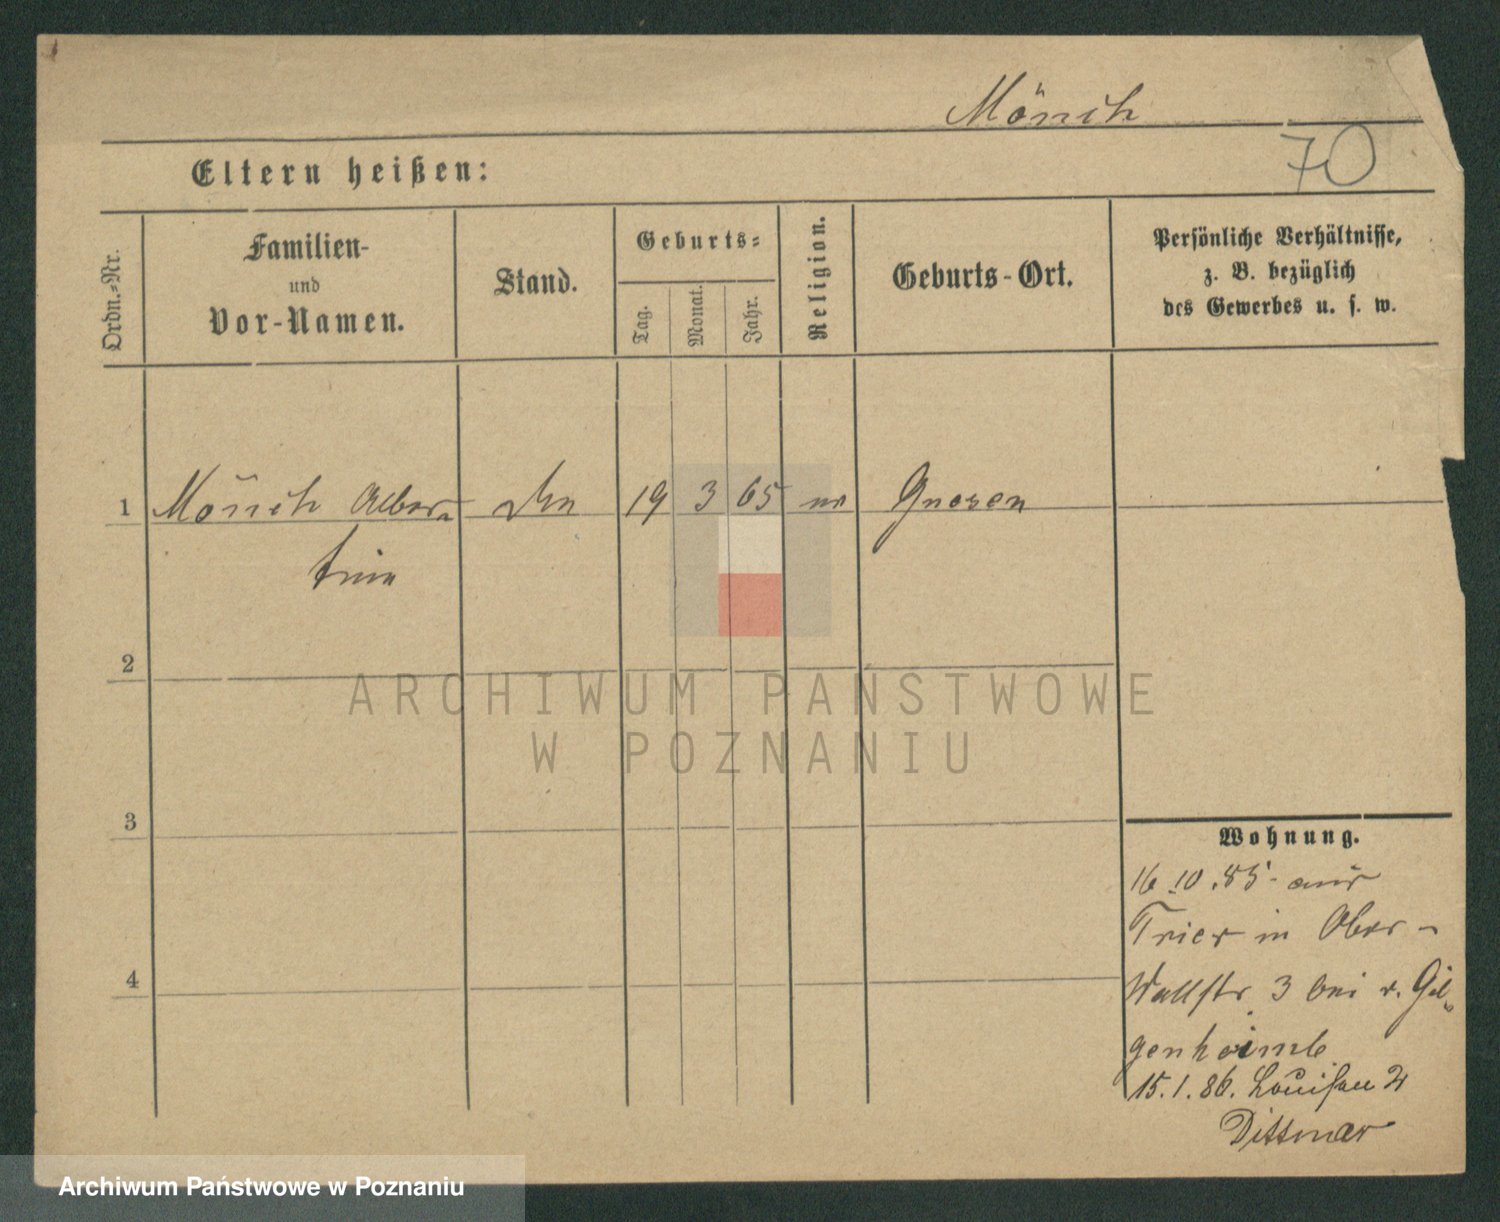 Mönch
Eltern heißen:
70
Ordn.-Nr.
Familien-
und
Vor-Namen.
Stand.
Geburts-
Tag.
Monat.
Jahr.
Religion.
Geburts-Ort.
Persönliche Verhältnisse,
z. B. bezüglich
des Gewerbes u. s. w.
1 Mönch Alber- 19 3 65 Gnesen
tine
2
3
4
Wohnung.
16.10.85 aus
Trier in Ober-
Wallstr 3 bei v. Gil-
genheimb
15.1.86. Louisen 2
Dittmar
ARCHIWUM PAŃSTWOWE
W POZNANIU
Archiwum Państwowe w Poznaniu